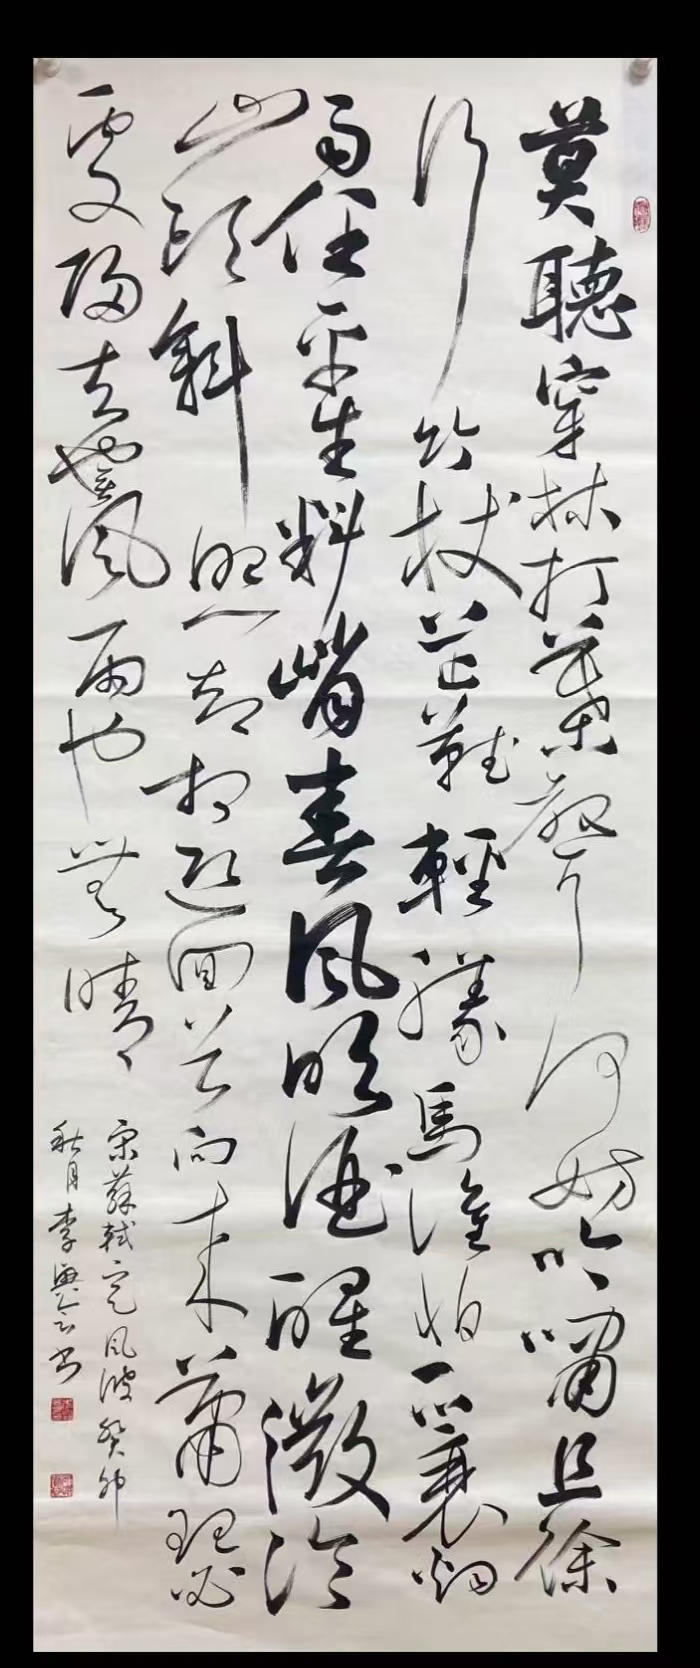 莫聽穿林打葉聲何妨吟嘯且徐
行竹杖芒鞋輕勝馬誰怕一蓑烟
雨任平生料峭春風吹酒醒微冷
山頭斜照却相迎回首向來蕭瑟
處歸去也無風雨也無晴
宋蘇軾定風波癸卯
秋月李興書